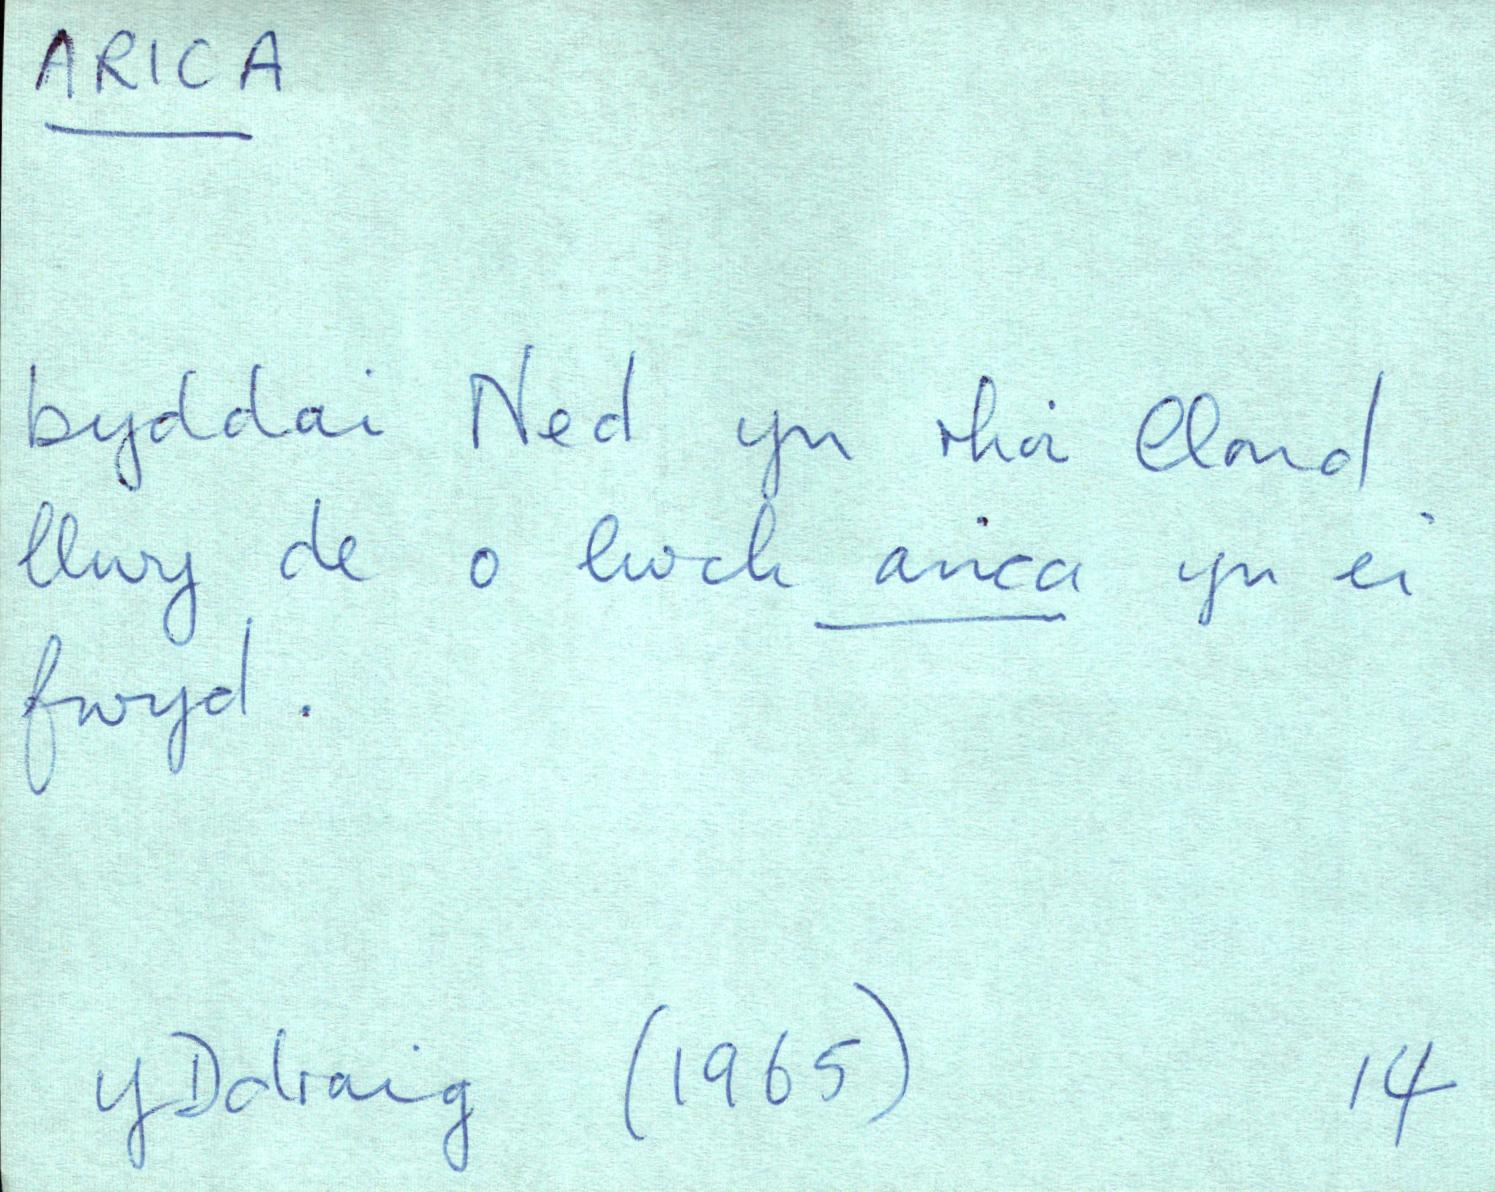 ARICA
byddai Ned yn rhoi llond
llwy de o lwch arica yn ei
fwyd.
y Ddraig (1965) 14